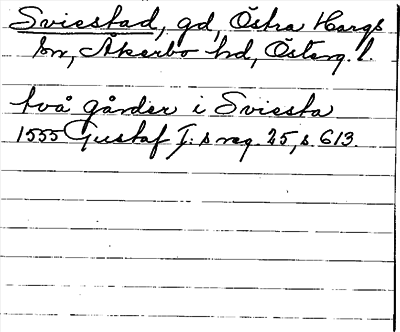 Sviestad, gd, Östra Hargs
sn, Åkerbo hd, Österg. l.
två gårder i Sviesta
1555 Gustaf I:s reg. 25, s. 613.